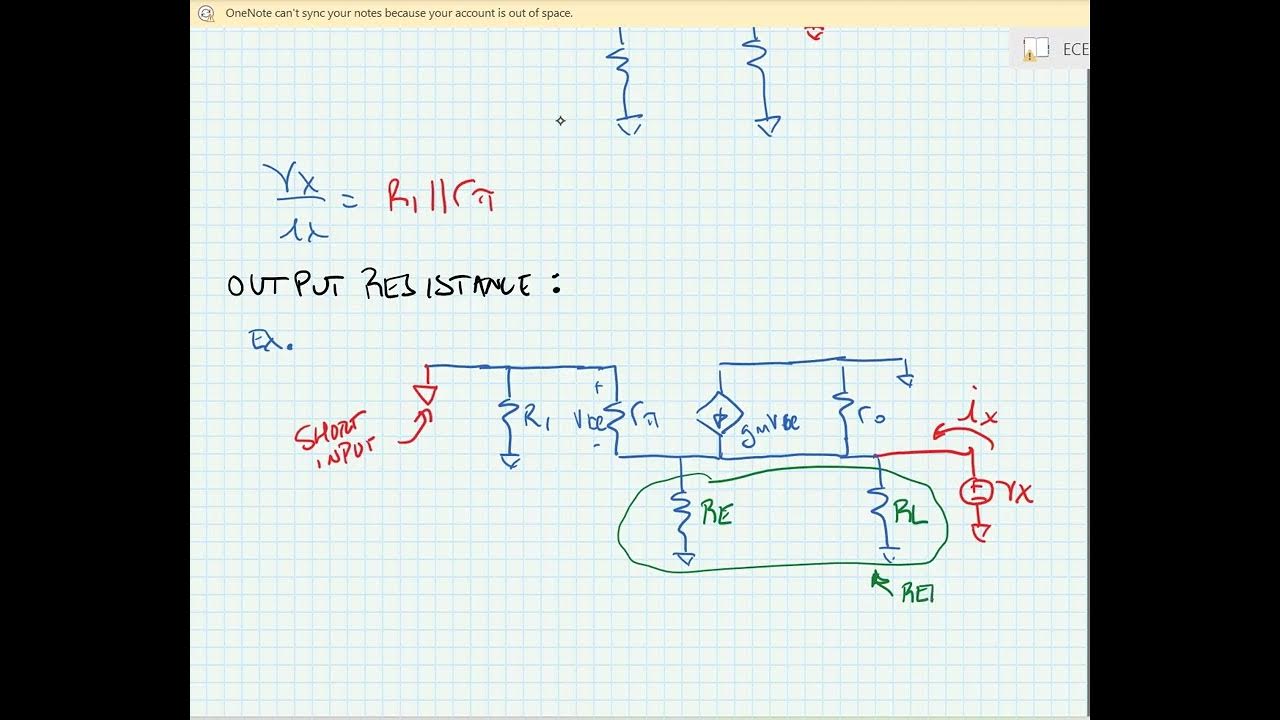 OneNote can't sync your notes because your account is out of space.
ECE
vx
ix
= R1 || rπ
OUTPUT RESISTANCE :
Ex.
SHORT
INPUT
R1
+
vbe
-
rπ
gmvbe
ro
ix
+
-
vx
RE
RL
RE1